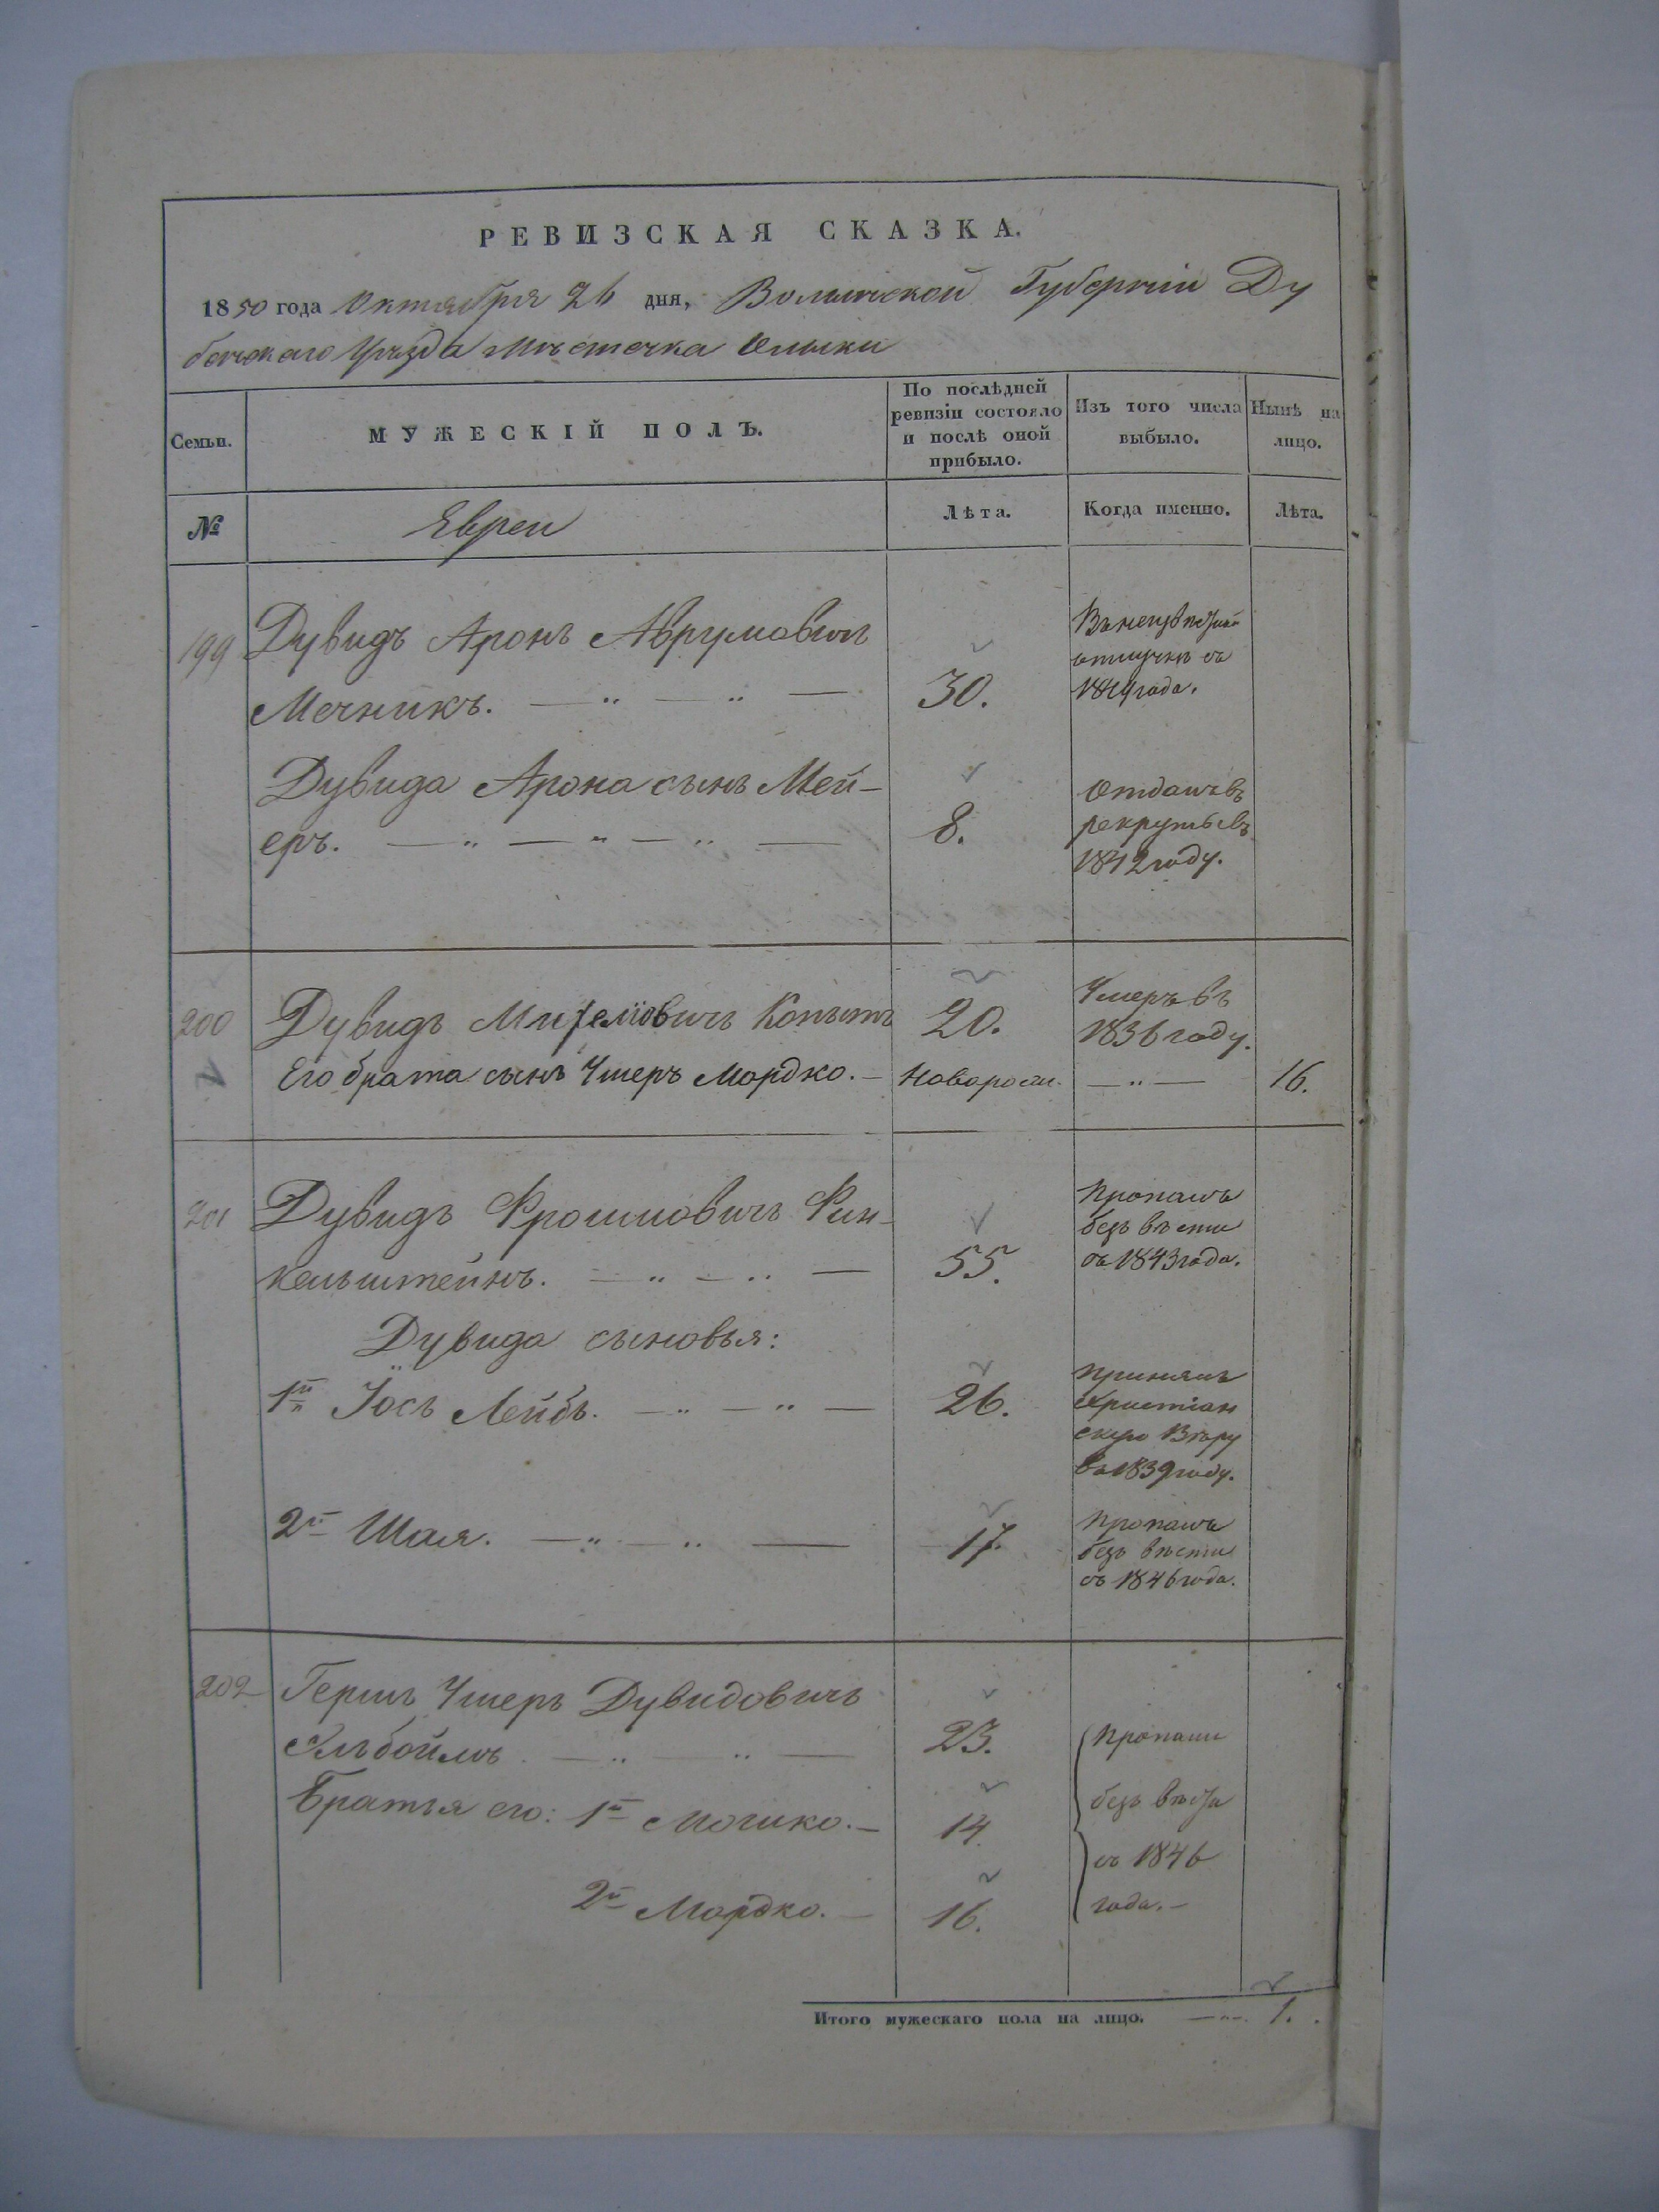 РЕВИЗСКАЯ СКАЗКА.
1850 года Октября 26 дня, Волынской Губерніи Ду
бенскаго Уѣзда Мѣстечка Олыки
Семьи.
МУЖЕСКІЙ ПОЛЪ.
По послѣдней
ревизіи состояло
и послѣ оной
прибыло.
Изъ того числа
выбыло.
Нынѣ на
лицо.
№
Евреи
Лѣта.
Когда именно.
Лѣта.
199
Дувидъ Аронъ Аврумовичъ
Мечникъ. — „ — „ —
30.
отлучкѣ съ
года.
Дувида Арона сынъ Мей-
еръ. — „ — „ — „ —
8.
Отданъ въ
рекруты въ
1842 году.
200
Дувидъ Копытъ
20.
Умеръ въ
1836 году.
Его брата сынъ Умеръ Мордко. —
Новорож.
— „ —
16.
201
Дувидъ Фроимовичъ Фин-
кельштейнъ. — „ — „ —
55.
Пропалъ
безъ вѣсти
съ 1843 года.
Дувида сыновья:
1й Іось Лейбъ. — „ — „ —
26.
Принялъ
Христіан
скую Вѣру
въ 1839 году.
2й Шая. — „ — „ —
17.
Пропалъ
безъ вѣсти
съ 1846 года.
202
Гершъ Умеръ Дувидовичъ
— „ — „ —
23.
Братья его: 1й Мошко. —
14.
2й Мордко. —
16.
Пропали
безъ вѣсти
съ 1846
года. —
Итого мужескаго пола на лицо. — „ — 1.